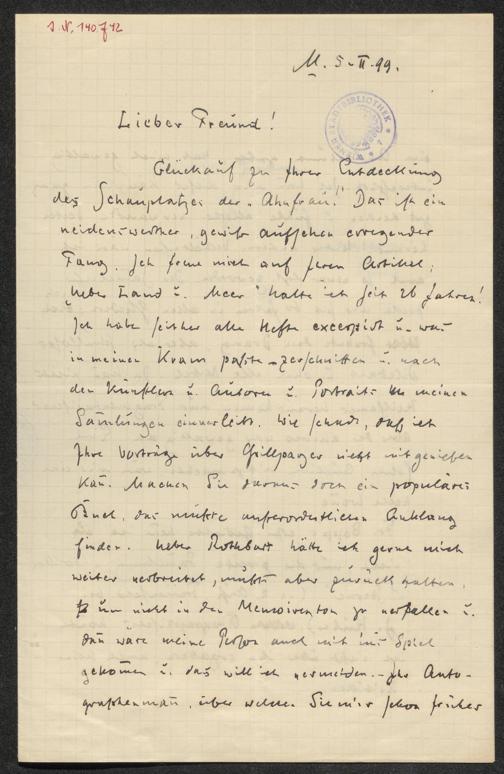 J. N. 140742
M. 5-II-99.
STADTBIBLIOTHEK
WIENER
Lieber Freund!
Glückauf zu Ihrer Entdeckung
des Schauplatzes der „Ahnfrau!" Das ist ein
neidenswerther, gewiß aufsehen erregender
Fang. Ich freue mich auf Ihren Artikel;
„Ueber Land u. Meer" halte ich seit 26 Jahren!
Ich habe seither alle Hefte excerpirt u. was
in meinen Kram paßte – zerschnitten u. nach
den Künstlern u. Autoren u. Portraits meinen
Samlungen einverleibt. Wie schade, daß ich
Ihre Vorträge über Grillparzer nicht mitgenießen
kan̄. Machen Sie daraus doch ein populäres
Buch, das müßte außerordentlichen Anklang
finden. Ueber Rothbart hätte ich gerne mich
weiter verbreitet, mußte aber zurückhalten,
um nicht in den Memoirenton zu verfallen u.
dan̄ wäre meine Person auch mit in's Spiel
gekom̄en u. das will ich vermeiden. – Ihr Auto-
graphenman̄, über welchen Sie mir schon früher